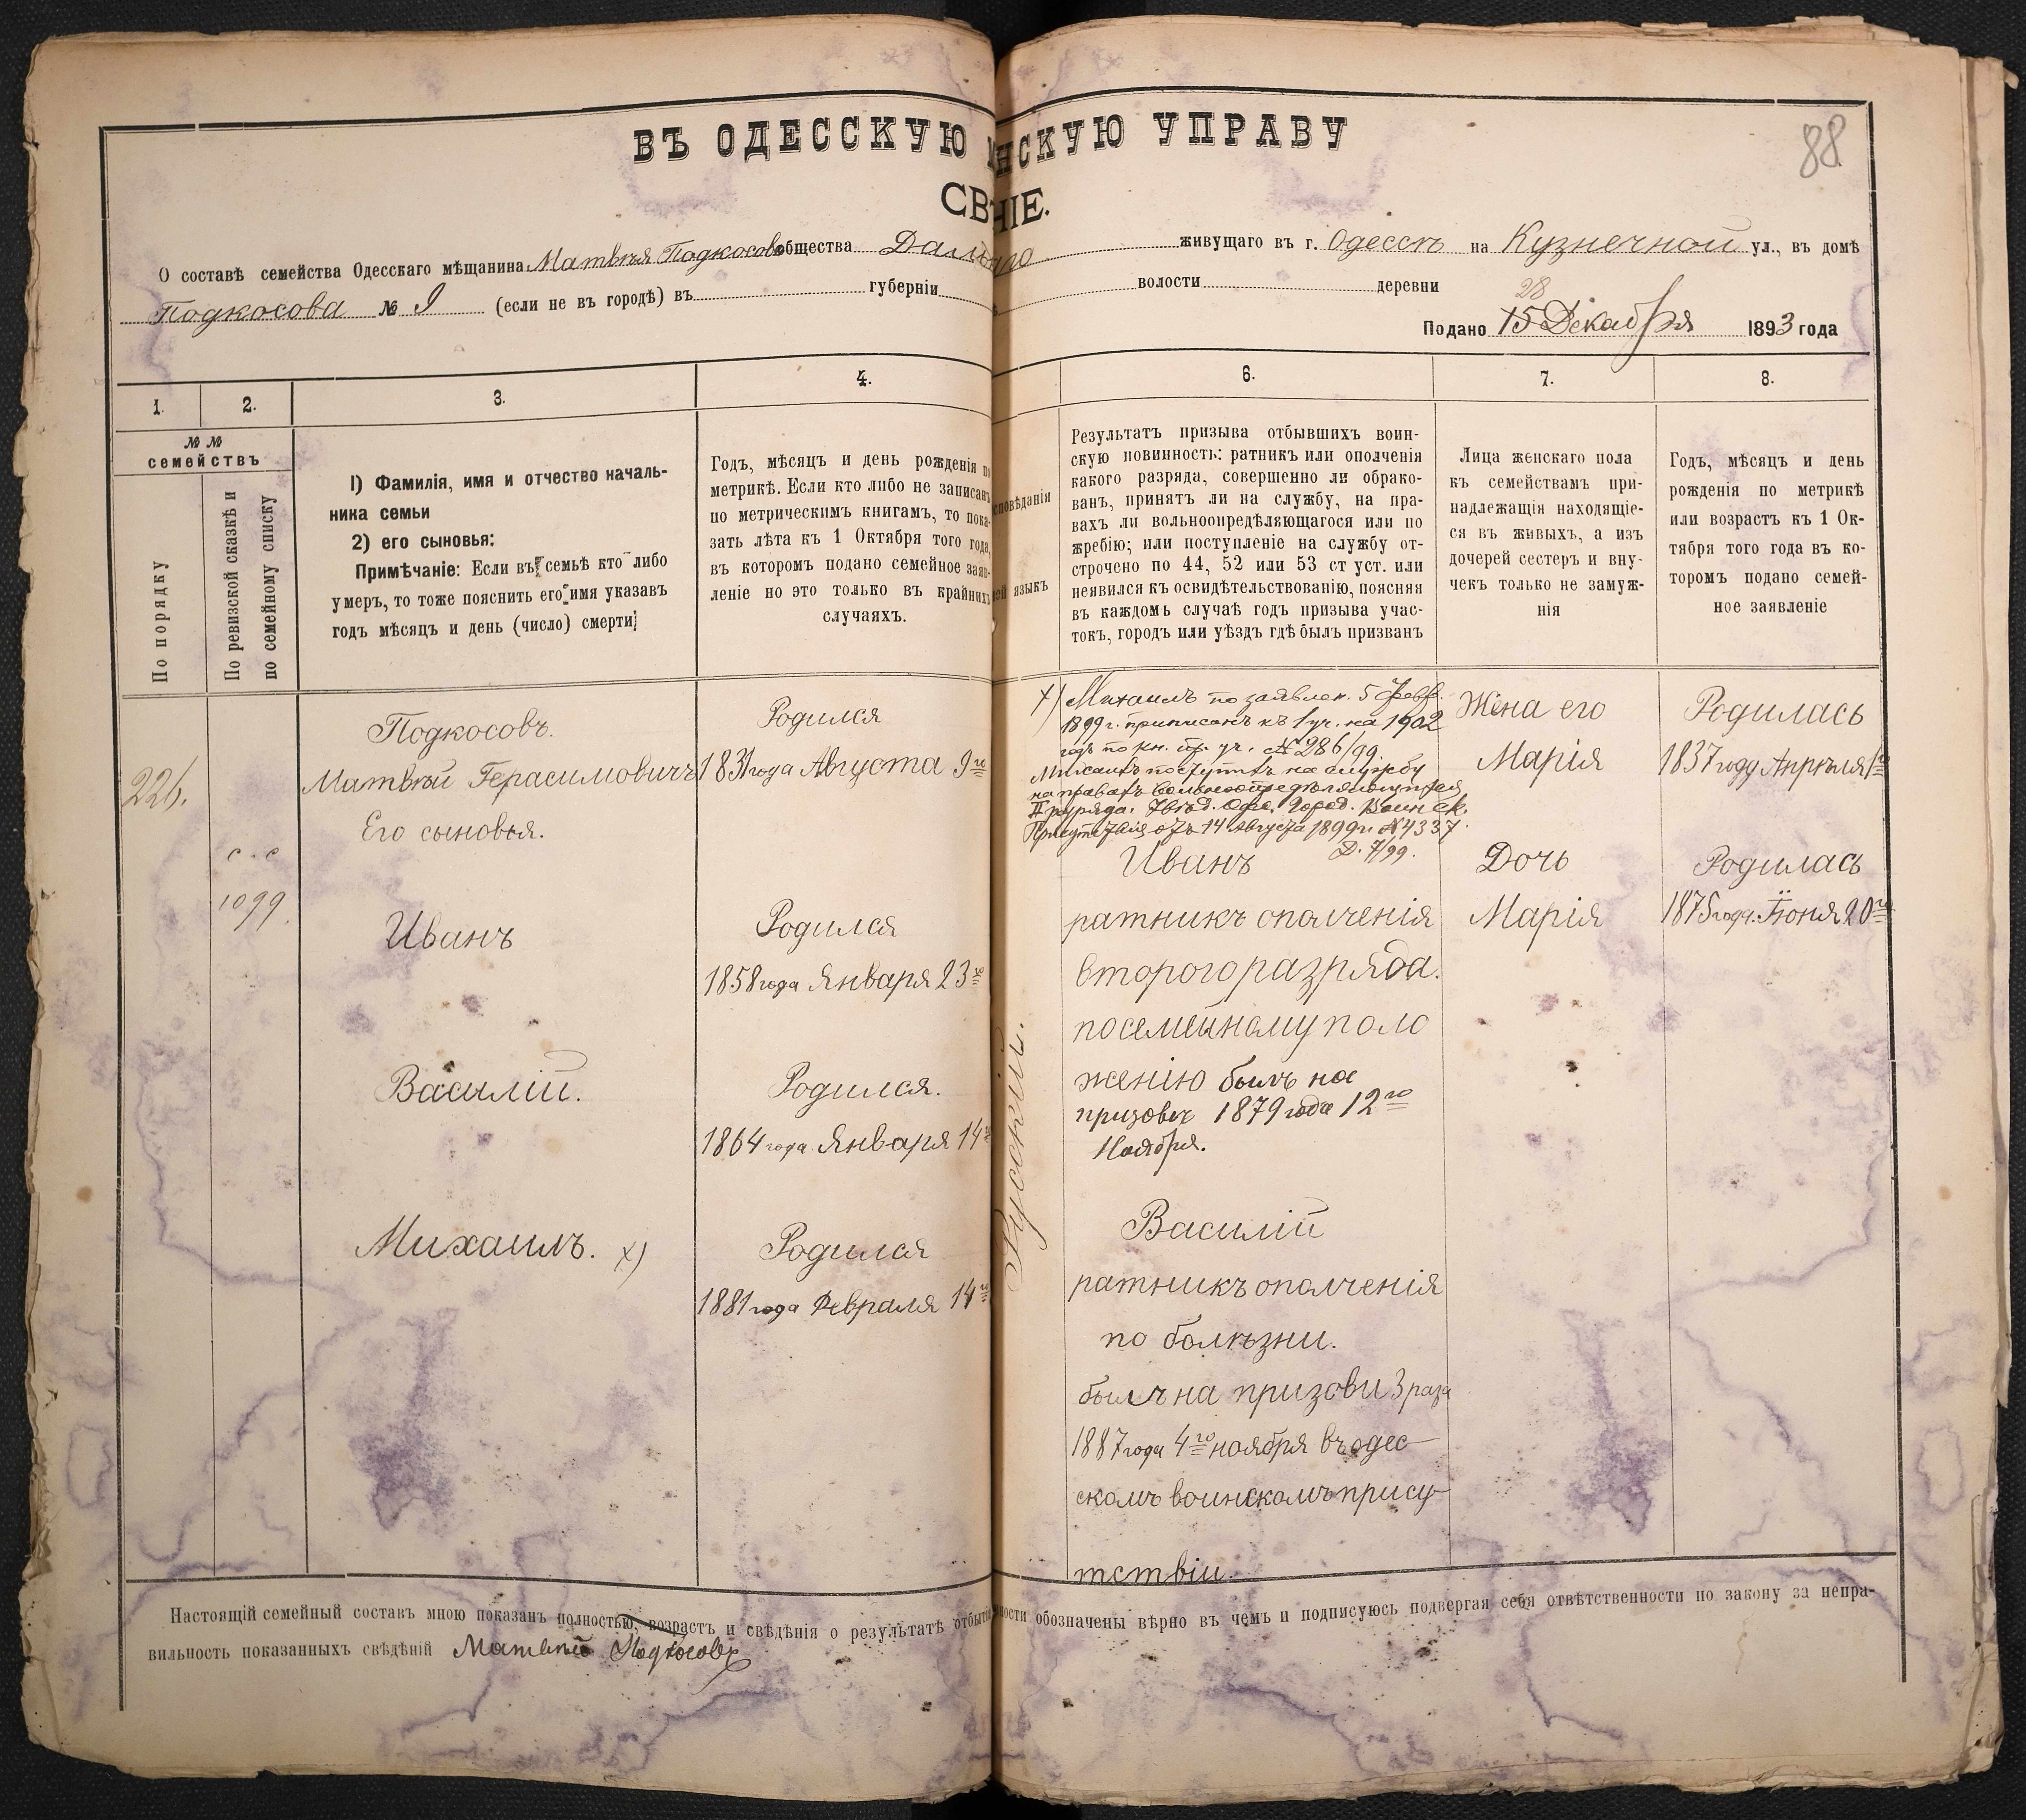 88
ВЪ ОДЕССКУЮ НСКУЮ УПРАВУ
СВ НІЕ.
О составѣ семейства Одесскаго мѣщанина Матвѣя Подкосова общества живущаго въ г. Одессѣ на Кузнечной ул., въ домѣ
Подкосова № 9 (если не въ городѣ) въ губерніи волости деревни
28
Подано 15 Декабря 1893 года
1. 2. 3. 4. 6. 7. 8.
№ №
семействъ
По порядку
По ревизской сказкѣ и
по семейному списку
1) Фамилія, имя и отчество началь-
ника семьи
2) его сыновья:
Примѣчаніе: Если въ семьѣ кто либо
умеръ, то тоже пояснить его имя указавъ
годъ мѣсяцъ и день (число) смерти
Годъ, мѣсяцъ и день рожденія по
метрикѣ. Если кто либо не записанъ
по метрическимъ книгамъ, то пока-
зать лѣта къ 1 Октября того года,
въ которомъ подано семейное заяв-
леніе но это только въ крайнихъ
случаяхъ.
сповѣданія
языкъ
Результатъ призыва отбывшихъ воин-
скую повинность: ратникъ или ополченія
какого разряда, совершенно ли обрако-
ванъ, принятъ ли на службу, на пра-
вахъ ли вольноопредѣляющагося или по
жребію; или поступленіе на службу от-
строчено по 44, 52 или 53 ст уст. или
неявился къ освидѣтельствованію, поясняя
въ каждомь случаѣ годъ призыва учас-
токъ, городъ или уѣздъ гдѣ былъ призванъ
Лица женскаго пола
къ семействамъ при-
надлежащія находящіе-
ся въ живыхъ, а изъ
дочерей сестеръ и вну-
чекъ только не замуж-
нія
Годъ, мѣсяцъ и день
рожденія по метрикѣ
или возрастъ къ 1 Ок-
тября того года въ ко-
торомъ подано семей-
ное заявленіе
226.
с . с
1099.
Подкосовъ.
Матвѣй Герасимовичъ
Его сыновья.
Иванъ
Василій.
Михаилъ. х)
Родился
1831 года Августа 9го
Родился
1858 года Января 23го
Родился.
1864 года Января 14го
Родился
1881 года Февраля 14го
Русскій.
х) Михаилъ по заявлен. 5 Февр.
1899 г. приписанъ къ 1 уч. на 1902
годъ по кн. пр. уч. № 286/99.
Михаилъ поступилъ на службу
на правахъ вольноопредѣляющагося
II разряда. Увѣд. Одес. Город. Воинск.
Присутствія отъ 14 Августа 1899 г. № 4337.
Д. 7/99.
Иванъ
ратникъ ополченія
второго разряда.
по семейному поло
женію былъ на
призовѣ 1879 года 12го
Ноября.
Василій
ратникъ ополченія
по болѣзни.
былъ на призови 3 раза
1887 года 4го ноября въ одес
скомъ воинскомъ прису
тствіи.
Жена его
Марія
Дочь
Марія
Родилась
1837 году Апрѣля 1го
Родилась
1875 года. Іюня 20го
Настоящій семейный составъ мною показанъ полностью, возрастъ и свѣдѣнія о результатѣ отбытія ности обозначены вѣрно въ чемъ и подписуюсь подвергая себя отвѣтственности по закону за непра-
вильность показанныхъ свѣдѣній Матвѣй Подкосовъ